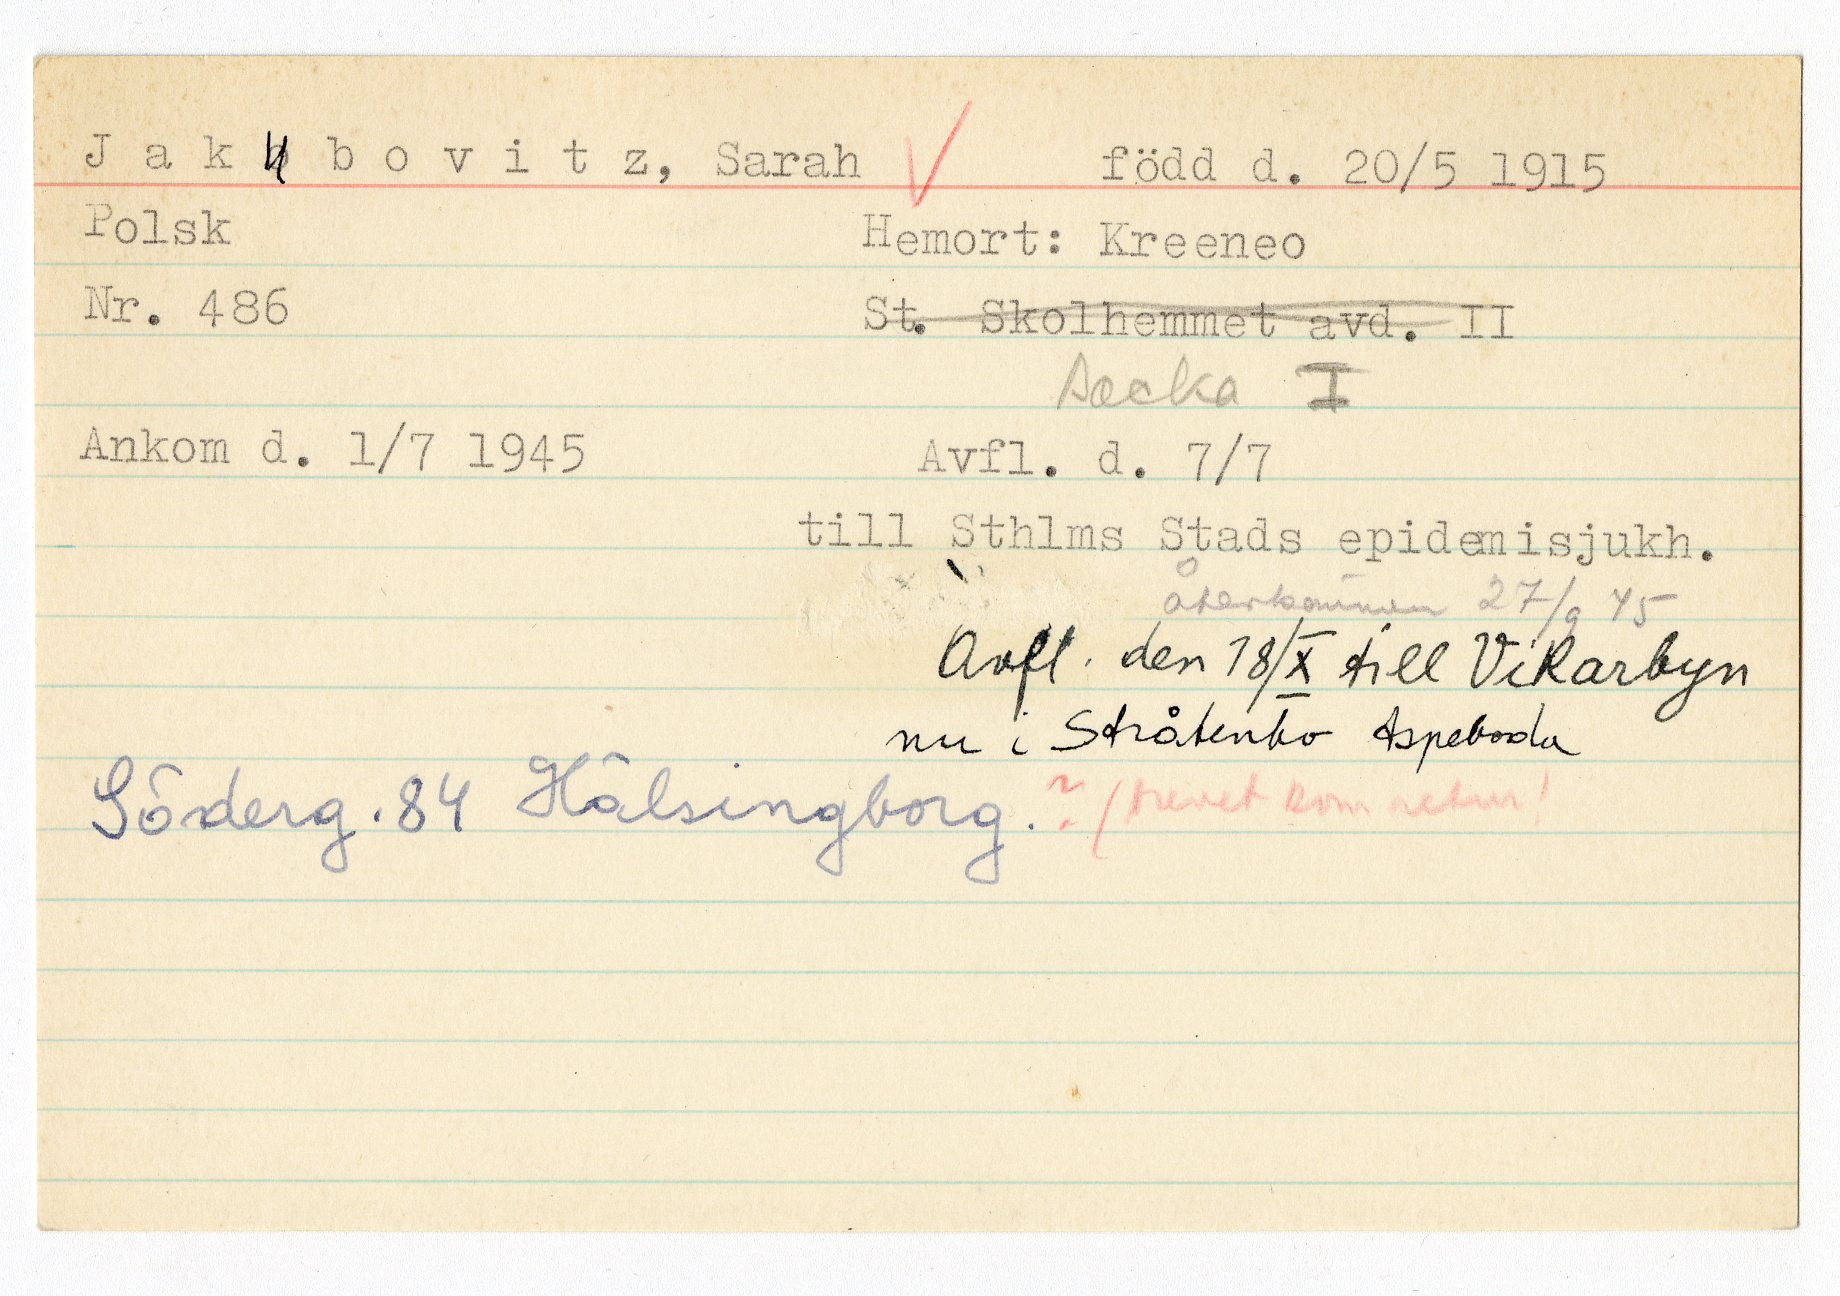 J a k u b o v i t z, Sarah född d. 20/5 1915
Polsk Hemort: Kreeneo
Nr. 486 St. Skolhemmet avd. II
Backa I
Ankom d. 1/7 1945 Avfl. d. 7/7
till Sthlms Stads epidemisjukh.
återkommen 27/9 45
Avfl. den 18/X till Vikarbyn
nu i Stråtenbo Aspeboda
Söderg. 84 Hälsingborg. ? (brevet kom retur!